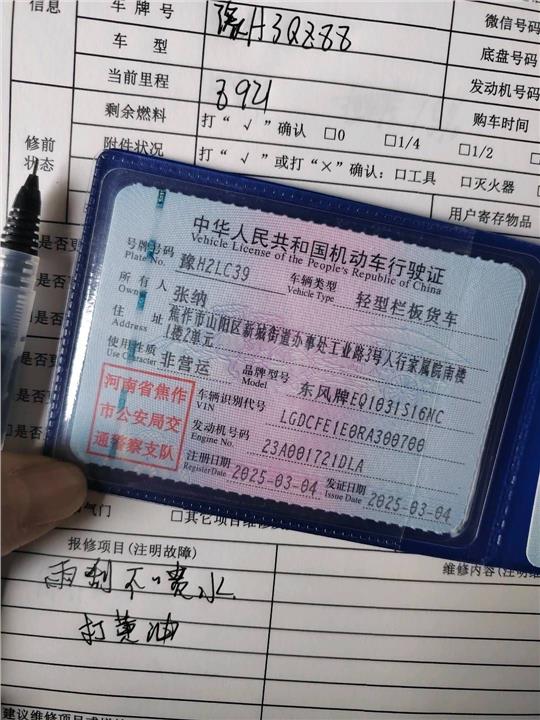 信息
车牌号
豫H3QZ88
微信号码
车型
底盘号码
当前里程
3921
发动机号码
剩余燃料
打“√”确认 □0 □1/4 □1/2
购车时间
修前
状态
附件状况
打“√”或打“×”确认：□工具 □灭火器
用户寄存物品
中华人民共和国机动车行驶证
Vehicle License of the People's Republic of China
号牌号码 豫H2LC39 车辆类型 轻型栏板货车
Plate No. Vehicle Type
所有人 张纳
Owner
住址 焦作市山阳区新城街道办事处工业路3号人行家属院南楼
Address 1楼2单元
使用性质 非营运 品牌型号 东风牌EQ1031S16MC
Use Character Model
河南省焦作
市公安局交
通警察支队
车辆识别代号 LGDCFE1E0RA300700
VIN
发动机号码 23A001721DLA
Engine No.
注册日期 2025-03-04 发证日期 2025-03-04
Register Date Issue Date
是否更
气门
□其它项目维修
报修项目(注明故障)
维修内容(注明
雨刮不喷水
打黄油
建议维修项目